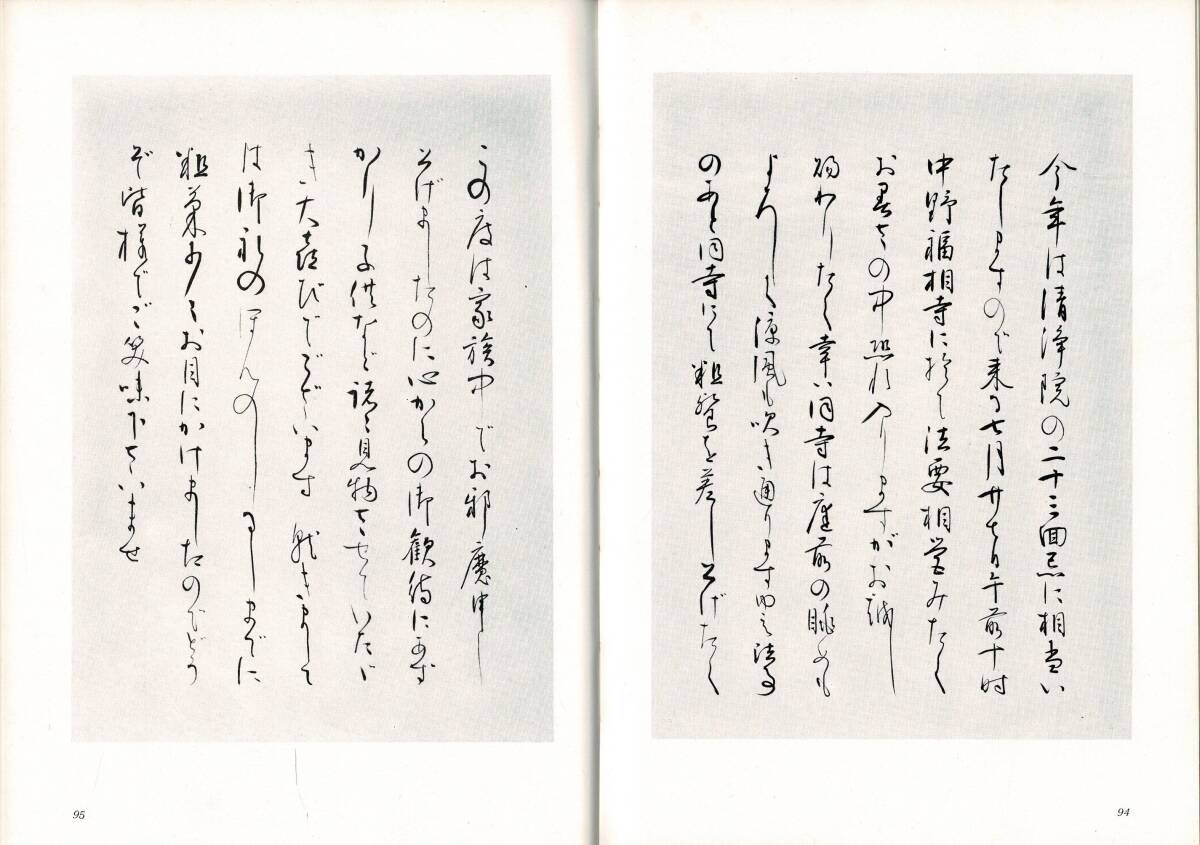 今年は清浄院の二十三回忌に相当い
たしますので来る七月廿七日午前十時
中野福相寺に於て法要相営みたく
お暑さの中恐れ入りますがお越し
賜わりたく幸い同寺は庭前の眺めも
よろしく涼風も吹き通ります由之法事
のあと同寺にて粗餐を差しあげたく
94
この度は家族中でお邪魔申し
あげましたのに心からの御歓待にあず
かりし子供など諸々見物させていただ
き大喜びでございます就きまして
は御礼のほんのしるしまでに
粗菓少々お目にかけましたのでどう
ぞ皆様でご笑味下さいませ
95